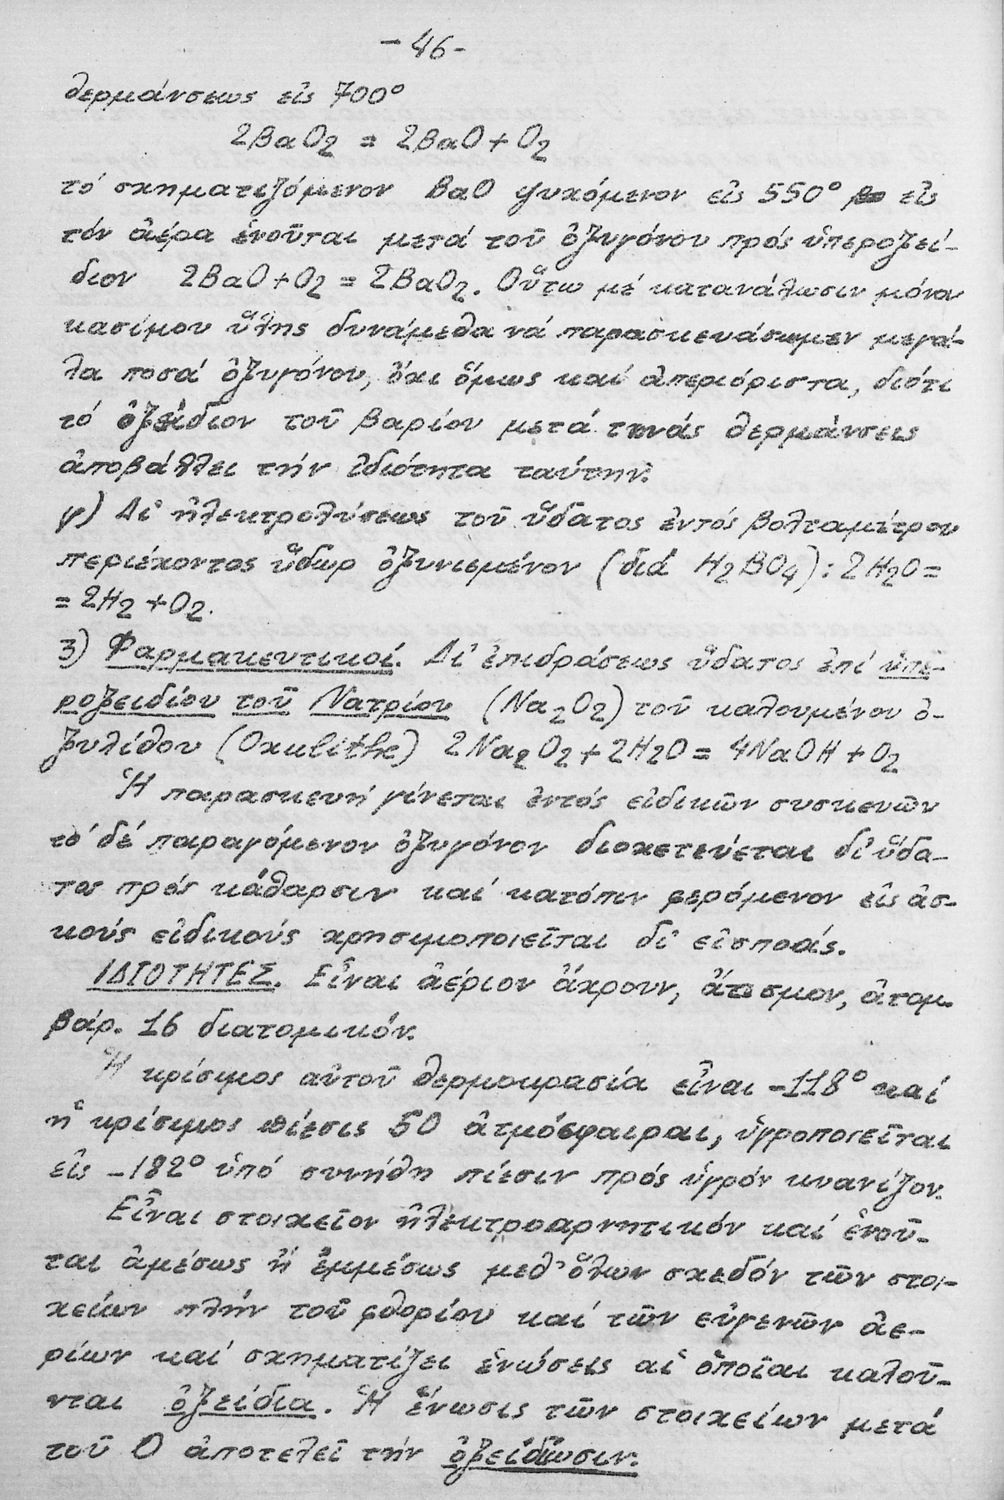 -46-
θερμάνσεως εἰς 700°
2BaO2 = 2BaO + O2
τό σχηματιζόμενον BaO ψυχόμενον εἰς 550° εἰς
τόν ἀέρα ἑνοῦται μετά τοῦ ὀξυγόνου πρός ὑπεροξεί-
διον 2BaO + O2 = 2BaO2. Οὕτω μέ κατανάλωσιν μόνον
καυσίμου ὕλης δυνάμεθα νά παρασκευάσωμεν μεγά-
λα ποσά ὀξυγόνου, ὄχι ὅμως καί ἀπεριόριστα, διότι
τό ὀξείδιον τοῦ βαρίου μετά τινάς θερμάνσεις
ἀποβάλλει τήν ἰδιότητα ταύτην.
γ) Δι' ἠλεκτρολύσεως τοῦ ὕδατος ἐντός βολταμέτρου
περιέχοντος ὕδωρ ὀξυνισμένον (διά H2BO4): 2H2O =
= 2H2 + O2.
3) Φαρμακευτικοί. Δι' ἐπιδράσεως ὕδατος ἐπί ὑπε-
ροξειδίου τοῦ Νατρίου (Na2O2) τοῦ καλουμένου ὀ-
ξυλίθου (Oxulithe) 2Na2O2 + 2H2O = 4NaOH + O2
Ἡ παρασκευή γίνεται ἐντός εἰδικῶν συσκευῶν
τό δέ παραγόμενον ὀξυγόνον διοχετεύεται δι' ὕδα-
τος πρός κάθαρσιν καί κατόπιν φερόμενον εἰς ἀσ-
κούς εἰδικούς χρησιμοποιεῖται δι' εἰσπνοάς.
ΙΔΙΟΤΗΤΕΣ. Εἶναι ἀέριον ἄχρουν, ἄοσμον, ἀτομ.
βάρ. 16 διατομικόν.
Ἡ κρίσιμος αὐτοῦ θερμοκρασία εἶναι -118° καί
ἡ κρίσιμος πίεσις 50 ἀτμόσφαιραι, ὑγροποιεῖται
εἰς -182° ὑπό συνήθη πίεσιν πρός ὑγρόν κυανίζον.
Εἶναι στοιχεῖον ἠλεκτροαρνητικόν καί ἑνοῦ-
ται ἀμέσως ἤ ἐμμέσως μεθ' ὅλων σχεδόν τῶν στοι-
χείων πλήν τοῦ φθορίου καί τῶν εὐγενῶν ἀε-
ρίων καί σχηματίζει ἑνώσεις αἱ ὁποῖαι καλοῦ-
νται ὀξείδια. Ἡ ἕνωσις τῶν στοιχείων μετά
τοῦ Ο ἀποτελεῖ τήν ὀξείδωσιν.